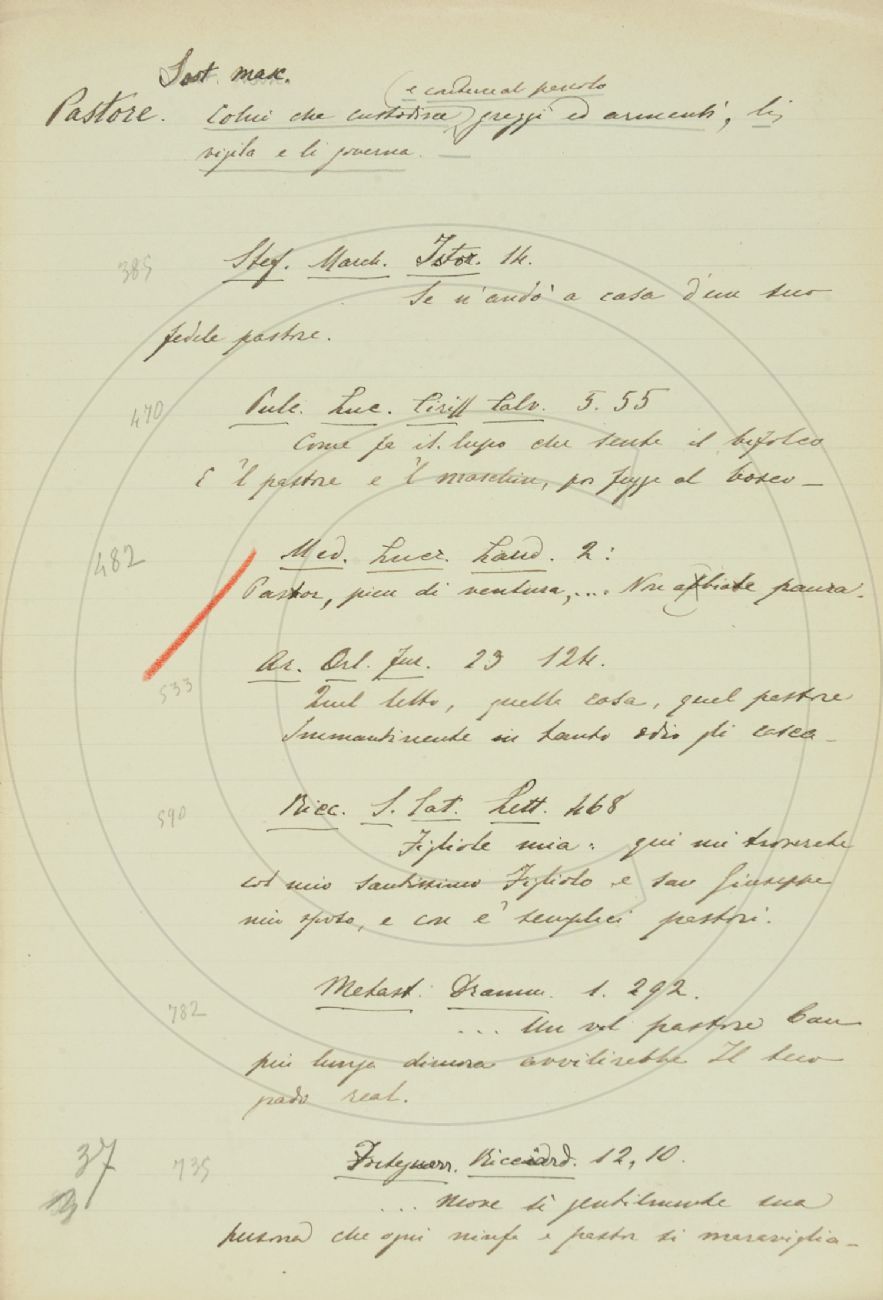 Sost. masc.
e conduce al pascolo
Pastore. Colui che custodisce greggi ed armenti, li
vigila e li governa.
385 Stef. March. Istor. 14.
Se n'andò a casa d'un suo
fedele pastore.
470 Pulc. Luc. Ciriff Calv. 5. 55
Come fa il lupo che sente il bifolco
E 'l pastore e 'l maschin, poi fugge al bosco
482 Med. Lucr. Laud. 2:
Pastor, pien di ventura,... Non abbiate paura.
533 Ar. Orl. Fur. 23 124.
Quel letto, quella casa, quel pastore
Immantinente in tanto odio gli casca
590 Ricc. S. Cat. Lett. 468
Figliole mia: qui mi troverete
col mio santissimo Figliolo e san Giuseppe
mio sposo, e con e' semplici pastori.
782 Metast. Dramm. 1. 292.
... Un vil pastore Con
più lunga dimora avvilirebbe Il suo
grado real.
37 735 Forteguerr. Ricciard. 12, 10.
... Move sì gentilmente sua
persona che ogni ninfa e pastor si maraviglia